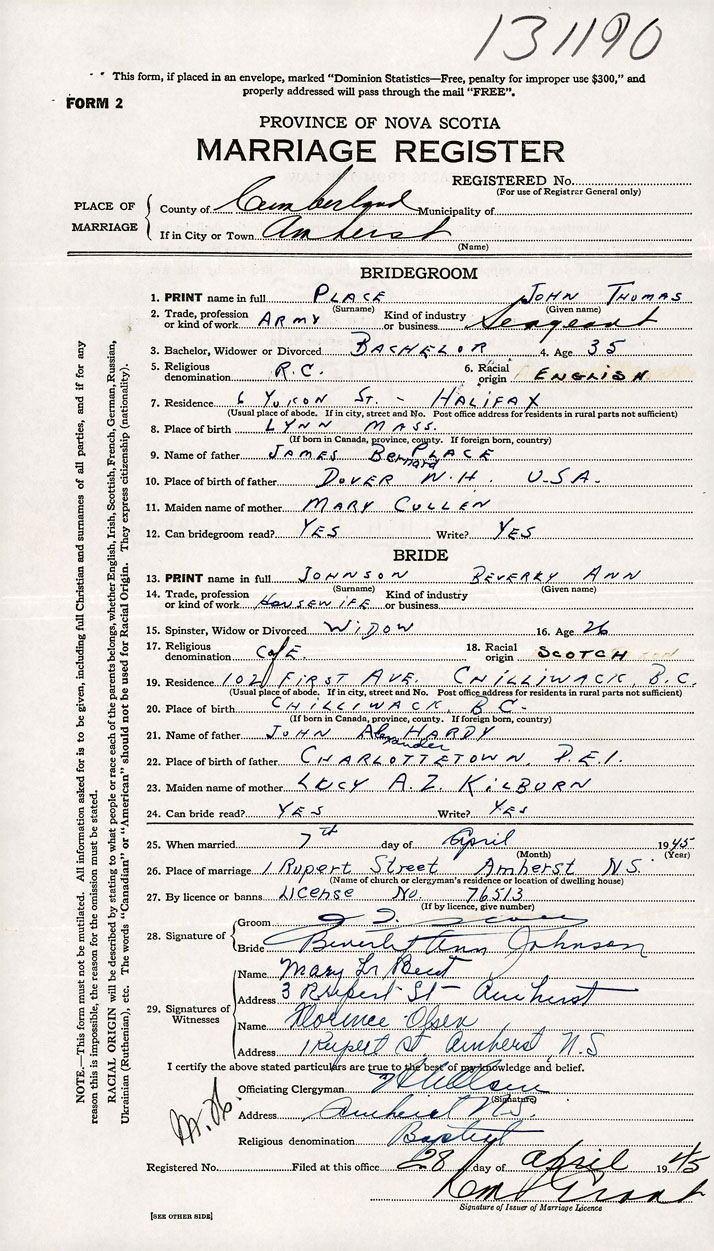 131190
This form, if placed in an envelope, marked “Dominion Statistics—Free, penalty for improper use $300,” and
properly addressed will pass through the mail “FREE”.
FORM 2
PROVINCE OF NOVA SCOTIA
MARRIAGE REGISTER
REGISTERED No.
(For use of Registrar General only)
PLACE OF MARRIAGE
County of Cumberland Municipality of
If in City or Town Amherst
(Name)
BRIDEGROOM
1. PRINT name in full PLACE JOHN THOMAS
(Surname) (Given name)
2. Trade, profession or kind of work ARMY Kind of industry or business Seageant
3. Bachelor, Widower or Divorced BACHELOR 4. Age 35
5. Religious denomination R.C. 6. Racial origin ENGLISH
7. Residence 6 YUKON ST. - HALIFAX
(Usual place of abode. If in city, street and No. Post office address for residents in rural parts not sufficient)
8. Place of birth LYNN MASS.
(If born in Canada, province, county. If foreign born, country)
9. Name of father JAMES Bernard PLACE
10. Place of birth of father DOVER N.H. U.S.A.
11. Maiden name of mother MARY CULLEN
12. Can bridegroom read? YES Write? YES
BRIDE
13. PRINT name in full JOHNSON BEVERLY ANN
(Surname) (Given name)
14. Trade, profession or kind of work HOUSEWIFE Kind of industry or business
15. Spinster, Widow or Divorced WIDOW 16. Age 26
17. Religious denomination C of E. 18. Racial origin SCOTCH
19. Residence 102 FIRST AVE. CHILLIWACK, B.C.
(Usual place of abode. If in city, street and No. Post office address for residents in rural parts not sufficient)
20. Place of birth CHILLIWACK, B.C.
(If born in Canada, province, county. If foreign born, country)
21. Name of father JOHN Alexander HARDY
22. Place of birth of father CHARLOTTETOWN, P.E.I.
23. Maiden name of mother LUCY A. Z. KILBURN
24. Can bride read? YES Write? YES
25. When married 7th day of April 1945
(Month) (Year)
26. Place of marriage 1 Rupert Street Amherst N.S.
(Name of church or clergyman's residence or location of dwelling house)
27. By licence or banns License No. 76513
(If by licence, give number)
28. Signature of
Groom
Bride Beverly Ann Johnson
29. Signatures of Witnesses
Name Mary
Address 3 Rupert St - Amherst
Name Florence Olsen
Address 1 Rupert St. Amherst, N.S
I certify the above stated particulars are true to the best of my knowledge and belief.
Officiating Clergyman
(Signature)
Address Amherst N.S.
Religious denomination Baptist
Registered No. Filed at this office 28 day of April 1945
Signature of Issuer of Marriage Licence
[SEE OTHER SIDE]
NOTE.—This form must not be mutilated. All information asked for is to be given, including full Christian and surnames of all parties, and if for any
reason this is impossible, the reason for the omission must be stated.
RACIAL ORIGIN will be described by stating to what people or race each of the parents belongs, whether English, Irish, Scottish, French, German, Russian,
Ukrainian (Ruthenian), etc. The words “Canadian” or “American” should not be used for Racial Origin. They express citizenship (nationality).